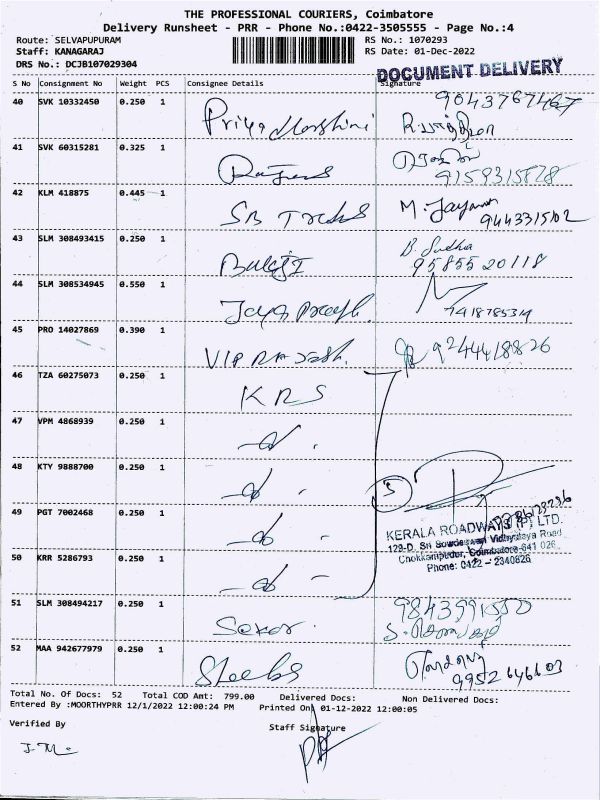 THE PROFESSIONAL COURIERS, Coimbatore
Delivery Runsheet - PRR - Phone No.:0422-3505555 - Page No.:4
Route: SELVAPUPURAM RS No.: 1070293
Staff: KANAGARAJ RS Date: 01-Dec-2022
DRS No.: DCJB107029304
DOCUMENT DELIVERY
S No Consignment No Weight PCS Consignee Details Signature
40 SVK 10332450 0.250 1 Priya
9043767467
41 SVK 60315281 0.325 1
9159315878
42 KLM 418875 0.445 1 SB M. Jayan
9443315102
43 SLM 308493415 0.250 1 Balaji B. Sudha
9585520118
44 SLM 308534945 0.550 1
7418785314
45 PRO 14027869 0.390 1 VIP RAJESH. 9244418826
46 TZA 60275073 0.250 1 KRS
47 VPM 4868939 0.250 1
48 KTY 9888700 0.250 1
5
49 PGT 7002468 0.250 1
KERALA ROADWAYS (P) LTD.
129-D, Sri Sowdeswari Vidhyalaya Road
Chokkampudur, Coimbatore-641 026
Phone: 0422 - 2340826
50 KRR 5286793 0.250 1
51 SLM 308494217 0.250 1 Sekar. 9843991550
52 MAA 942677979 0.250 1
9952646603
Total No. Of Docs: 52 Total COD Amt: 799.00 Delivered Docs: Non Delivered Docs:
Entered By :MOORTHYPRR 12/1/2022 12:00:24 PM Printed On: 01-12-2022 12:00:05
Verified By Staff Signature